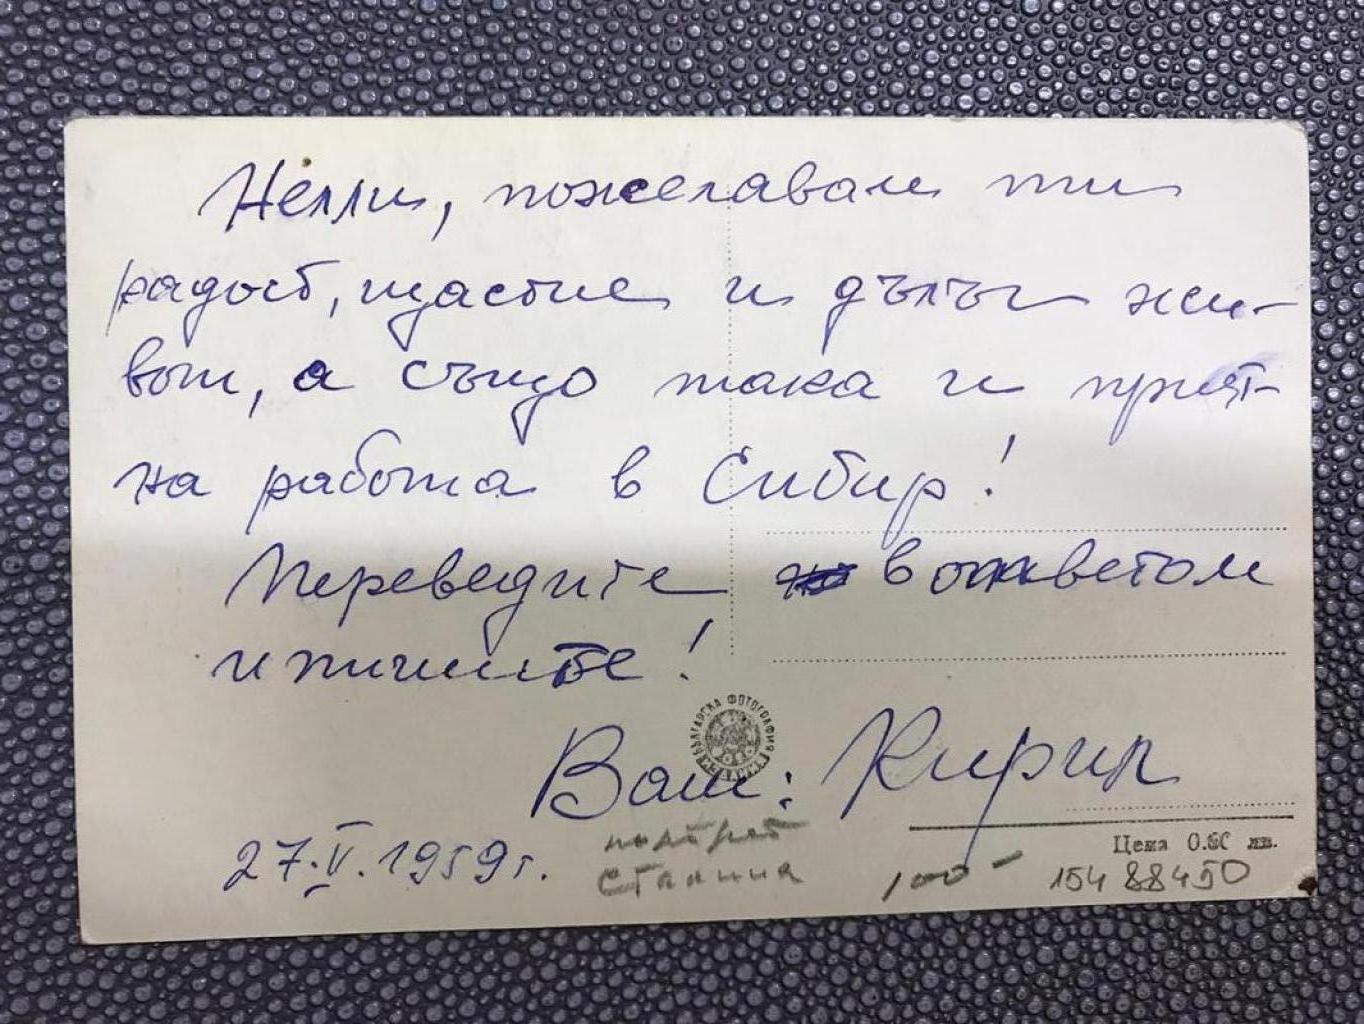 Нелли, пожелавам ти
радост, щастие и дълъг жи-
вот, а също така и прият-
на работа в Сибир!
Переведите в ответом
и пишите!
Ваш: Кирил
27.V.1959г.
БЪЛГАРСКА ФОТОГРАФИЯ
портрет
Сталина
100-
Цена 0.60 лв.
154 88450